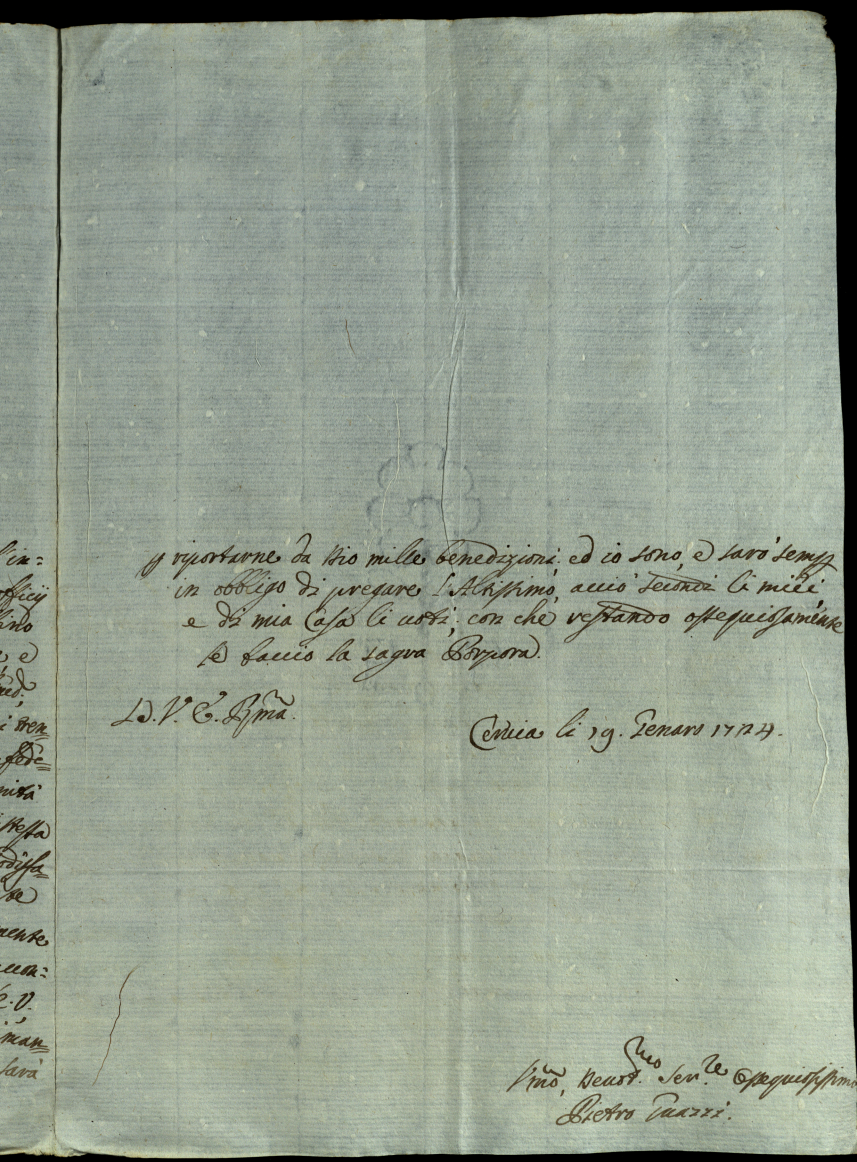 l'in=
officij
e
i ven=
fede=
nità
stessa
odisfa=
te
mente
uon=
E. V.
man=
sarà
p riportarne da Dio mille benedizioni. ed io sono, e sarò semp
in obbligo di pregare l'Altissimo, acciò secondi li miei
e di mia Casa li uoti; con che restando ossequiosamente
le baccio la sagra Porpora.
D. V. E. Rma.
Ceruia li 19. Genaro 1724.
Vmo, Deuot.mo Ser.re Ossequiosissimo
Pietro Guazzi.